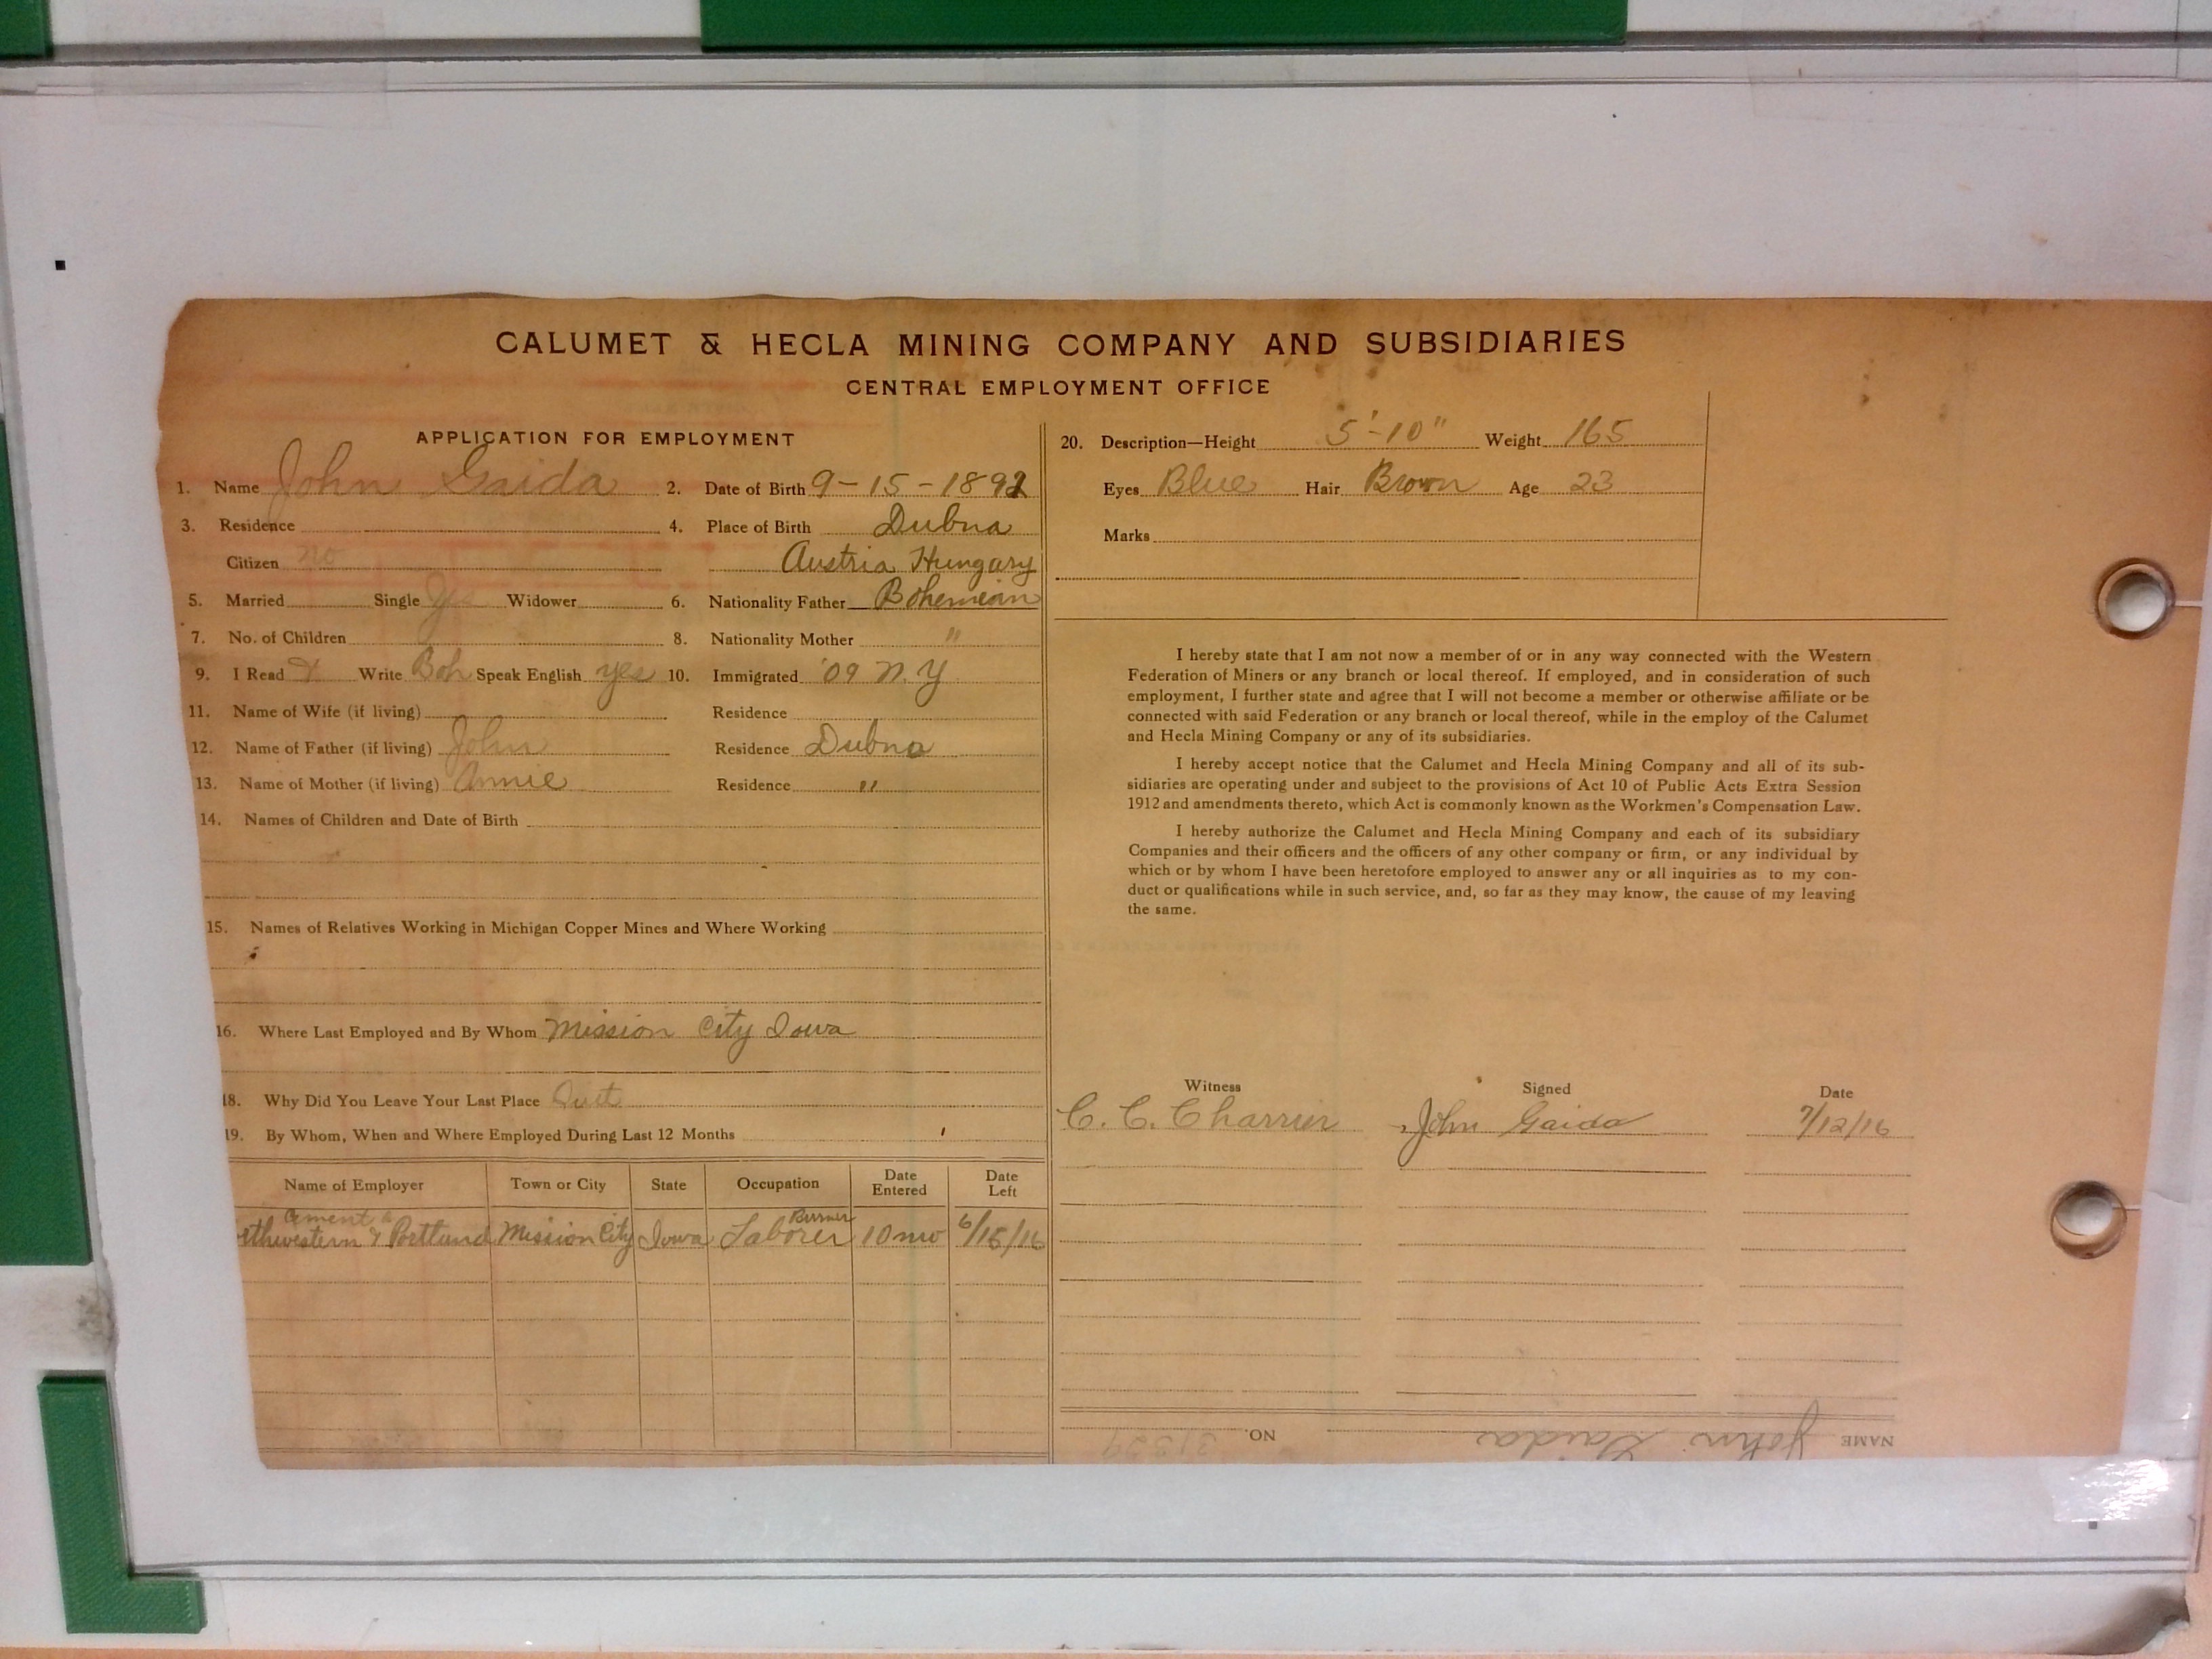 CALUMET & HECLA MINING COMPANY AND SUBSIDIARIES
CENTRAL EMPLOYMENT OFFICE
APPLICATION FOR EMPLOYMENT
1. Name John Gaida 2. Date of Birth 9-15-1892
3. Residence 4. Place of Birth Dubna
Citizen no Austria Hungary
5. Married Single Yes Widower 6. Nationality Father Bohemian
7. No. of Children 8. Nationality Mother "
9. I Read & Write Boh Speak English yes 10. Immigrated '09 N.Y
11. Name of Wife (if living) Residence
12. Name of Father (if living) John Residence Dubna
13. Name of Mother (if living) Annie Residence "
14. Names of Children and Date of Birth
15. Names of Relatives Working in Michigan Copper Mines and Where Working
16. Where Last Employed and By Whom Mission City Iowa
18. Why Did You Leave Your Last Place Quit
19. By Whom, When and Where Employed During Last 12 Months
Name of Employer Town or City State Occupation Date Entered Date Left
Cement Burner
thwestern & Portland Mission City Iowa Laborer 10 mo 6/15/16
20. Description—Height 5'-10" Weight 165
Eyes Blue Hair Brown Age 23
Marks
I hereby state that I am not now a member of or in any way connected with the Western
Federation of Miners or any branch or local thereof. If employed, and in consideration of such
employment, I further state and agree that I will not become a member or otherwise affiliate or be
connected with said Federation or any branch or local thereof, while in the employ of the Calumet
and Hecla Mining Company or any of its subsidiaries.
I hereby accept notice that the Calumet and Hecla Mining Company and all of its sub-
sidiaries are operating under and subject to the provisions of Act 10 of Public Acts Extra Session
1912 and amendments thereto, which Act is commonly known as the Workmen's Compensation Law.
I hereby authorize the Calumet and Hecla Mining Company and each of its subsidiary
Companies and their officers and the officers of any other company or firm, or any individual by
which or by whom I have been heretofore employed to answer any or all inquiries as to my con-
duct or qualifications while in such service, and, so far as they may know, the cause of my leaving
the same.
Witness Signed Date
C. C. Charrier John Gaida 7/12/16
NAME John Gaida NO.